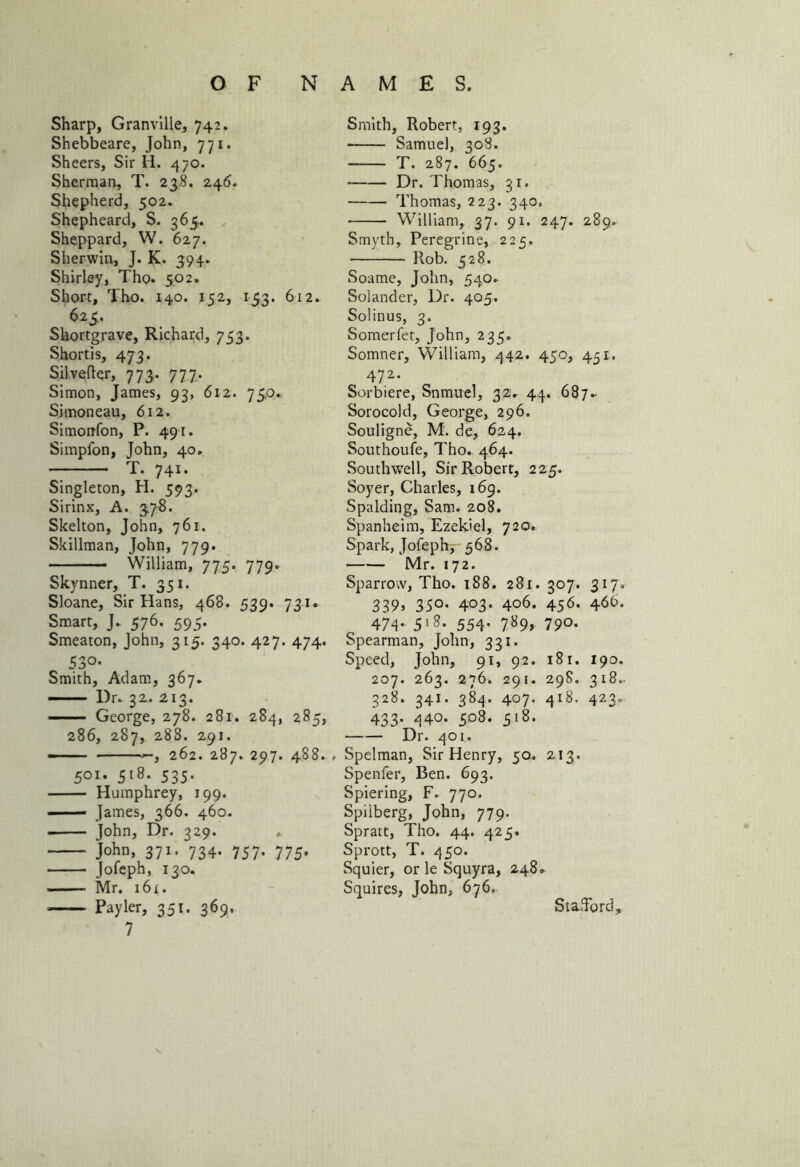 OF NAMES.
Sharp, Granville, 742.
Shebbeare, John, 771.
Sheers, Sir H. 470.
Sherman, T. 238. 246.
Shepherd, 502.
Shepheard, S. 365.
Sheppard, W. 627.
Sherwin, J. K. 394.
Shirley, Tho. 502.
Short, Tho. 140. 152, 153. 612.
625.
Shortgrave, Richard, 753.
Shortis, 473.
Silveſter, 773. 777.
Simon, James, 93, 612. 750.
Simoneau, 612.
Simonſon, P. 491.
Simpſon, John, 40.
——— T. 741.
Singleton, H. 593.
Sirinx, A. 378.
Skelton, John, 761.
Skillman, John, 779.
——— William, 775. 779.
Skynner, T. 351.
Sloane, Sir Hans, 468. 539. 731.
Smart, J. 576. 595.
Smeaton, John, 315. 340. 427. 474.
530.
Smith, Adam, 367.
—— Dr. 32. 213.
—— George, 278. 281. 284, 285,
286, 287, 288. 291.
—— ——, 262. 287. 297. 488.
501. 518. 535.
—— Humphrey, 199.
—— James, 366. 460.
—— John, Dr. 329.
—— John, 371. 734. 757. 775.
—— Joſeph, 130.
—— Mr. 161.
—— Payler, 351. 369.
7
Smith, Robert, 193.
—— Samuel, 308.
—— T. 287. 665.
—— Dr. Thomas, 31.
—— Thomas, 223. 340.
—— William, 37. 91. 247. 289.
Smyth, Peregrine, 225.
——— Rob. 528.
Soame, John, 540.
Solander, Dr. 405.
Solinus, 3.
Somerſet, John, 235.
Somner, William, 442. 450, 451.
472.
Sorbiere, Snmuel, 32. 44. 687.
Sorocold, George, 296.
Soulignè, M. de, 624.
Southouſe, Tho. 464.
Southwell, Sir Robert, 225.
Soyer, Charles, 169.
Spalding, Sam. 208.
Spanheim, Ezekiel, 720.
Spark, Joſeph, 568.
—— Mr. 172.
Sparrow, Tho. 188. 281. 307. 317.
339, 350. 403. 406. 456. 466.
474. 518. 554. 789, 790.
Spearman, John, 331.
Speed, John, 91, 92. 181. 190.
207. 263. 276. 291. 298. 318.
328. 341. 384. 407. 418. 423.
433. 440. 508. 518.
—— Dr. 401.
Spelman, Sir Henry, 50. 213.
Spenſer, Ben. 693.
Spiering, F. 770.
Spilberg, John, 779.
Spratt, Tho. 44. 425.
Sprott, T. 450.
Squier, or le Squyra, 248.
Squires, John, 676.
Stafford,